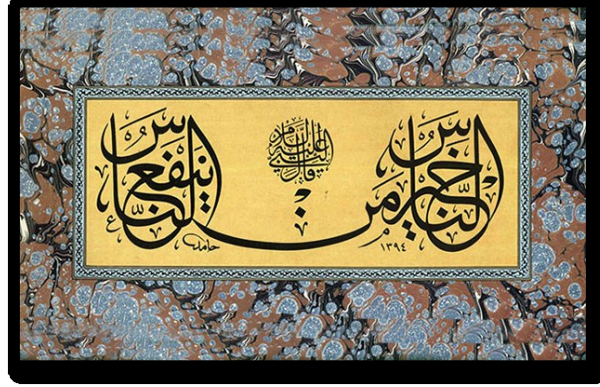 قال النبي عليه السلام
خير الناس من ينفع الناس
١٣٩٤
حامد